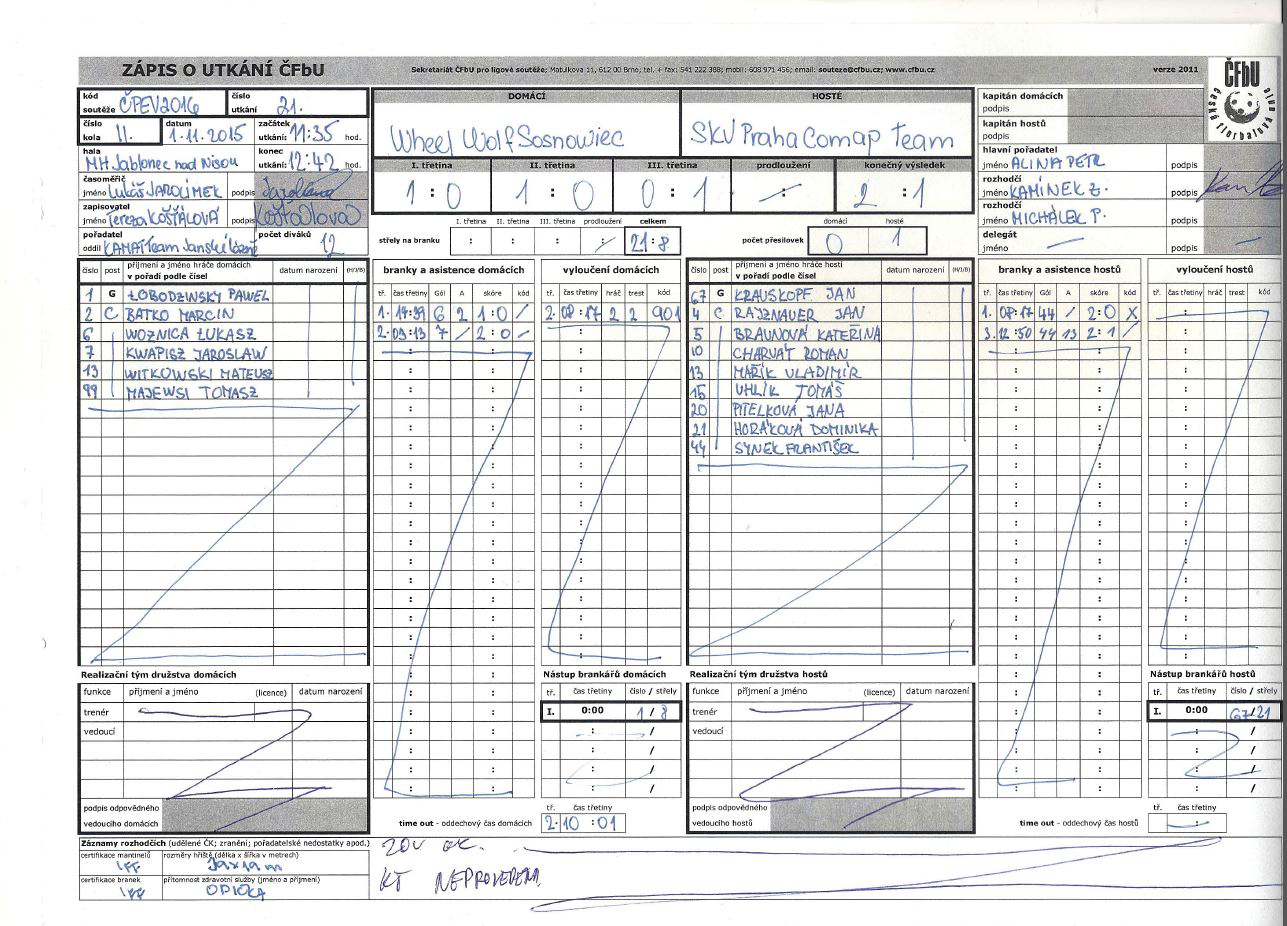 ZÁPIS O UTKÁNÍ ČFbU
Sekretariát ČFbU pro ligové soutěže; Matulkova 11, 612 00 Brno; tel. + fax: 541 222 388; mobil: 608 971 456; email: souteze@cfbu.cz; www.cfbu.cz
verze 2011
ČFbU
kód soutěže ČPEV2016 číslo utkání 21.
číslo kola 11. datum 1.11.2015 začátek utkání: 11:35 hod.
hala MH Jablonec nad Nisou konec utkání: 12:42 hod.
časoměřič jméno Lukáš JAROLÍMEK podpis
zapisovatel jméno Tereza KOŠŤÁLOVÁ podpis Košťálová
pořadatel oddíl KAMAT Team Janské Lázně počet diváků 12
DOMÁCÍ HOSTÉ
Wheel Wolf Sosnowiec SKV Praha Comap Team
I. třetina II. třetina III. třetina prodloužení konečný výsledek
1 : 0 1 : 0 0 : 1 - : 2 : 1
I. třetina II. třetina III. třetina prodloužení celkem domácí hosté
střely na branku : : : : 21:8 počet přesilovek 0 1
kapitán domácích podpis
kapitán hostů podpis
hlavní pořadatel jméno ALINA PETR podpis
rozhodčí jméno KAMÍNEK Z. podpis
rozhodčí jméno MICHÁLEK P.
delegát jméno — podpis —
číslo post příjmení a jméno hráče domácích v pořadí podle čísel datum narození (H/J/B)
1 G ŁOBODZINSKY PAWEL
2 C BATKO MARCIN
6 WOZNICA ŁUKASZ
7 KWAPISZ JAROSLAW
13 WITKOWSKI MATEUSZ
99 MAJEWSI TOMASZ
branky a asistence domácích
tř. čas třetiny Gól A skóre kód
1. 14:39 6 2 1:0 /
2. 03:13 7 / 2:0 /
vyloučení domácích
tř. čas třetiny hráč trest kód
2. 08:17 2 2 901
číslo post příjmení a jméno hráče hostů v pořadí podle čísel datum narození (H/J/B)
67 G KRAUSKOPF JAN
4 C RAJZNAUER JAN
5 BRAUNOVÁ KATEŘINA
10 CHARVÁT ROMAN
13 MAŘÍK VLADIMÍR
15 UHLÍK TOMÁŠ
20 PITELKOVÁ JANA
21 HORÁKOVÁ DOMINIKA
44 SYNEK FRANTIŠEK
branky a asistence hostů
tř. čas třetiny Gól A skóre kód
1. 08:17 44 / 2:0 X
3. 12:50 44 13 2:1 /
vyloučení hostů
tř. čas třetiny hráč trest kód
Realizační tým družstva domácích
funkce příjmení a jméno (licence) datum narození
trenér
vedoucí
podpis odpovědného
vedoucího domácích
Nástup brankářů domácích
tř. čas třetiny číslo / střely
I. 0:00 1 / 8
tř. čas třetiny
time out - oddechový čas domácích 2. 10:01
Realizační tým družstva hostů
funkce příjmení a jméno (licence) datum narození
trenér
vedoucí
podpis odpovědného
vedoucího hostů
Nástup brankářů hostů
tř. čas třetiny číslo / střely
I. 0:00 67/21
tř. čas třetiny
time out - oddechový čas hostů
Záznamy rozhodčích (udělené ČK; zranění; pořadatelské nedostatky apod.)
certifikace mantinelů IFF rozměry hřiště (délka x šířka v metrech)
certifikace branek IFF přítomnost zdravotní služby (jméno a příjmení)
ZÚV OK.
KT NEPROVEDENA